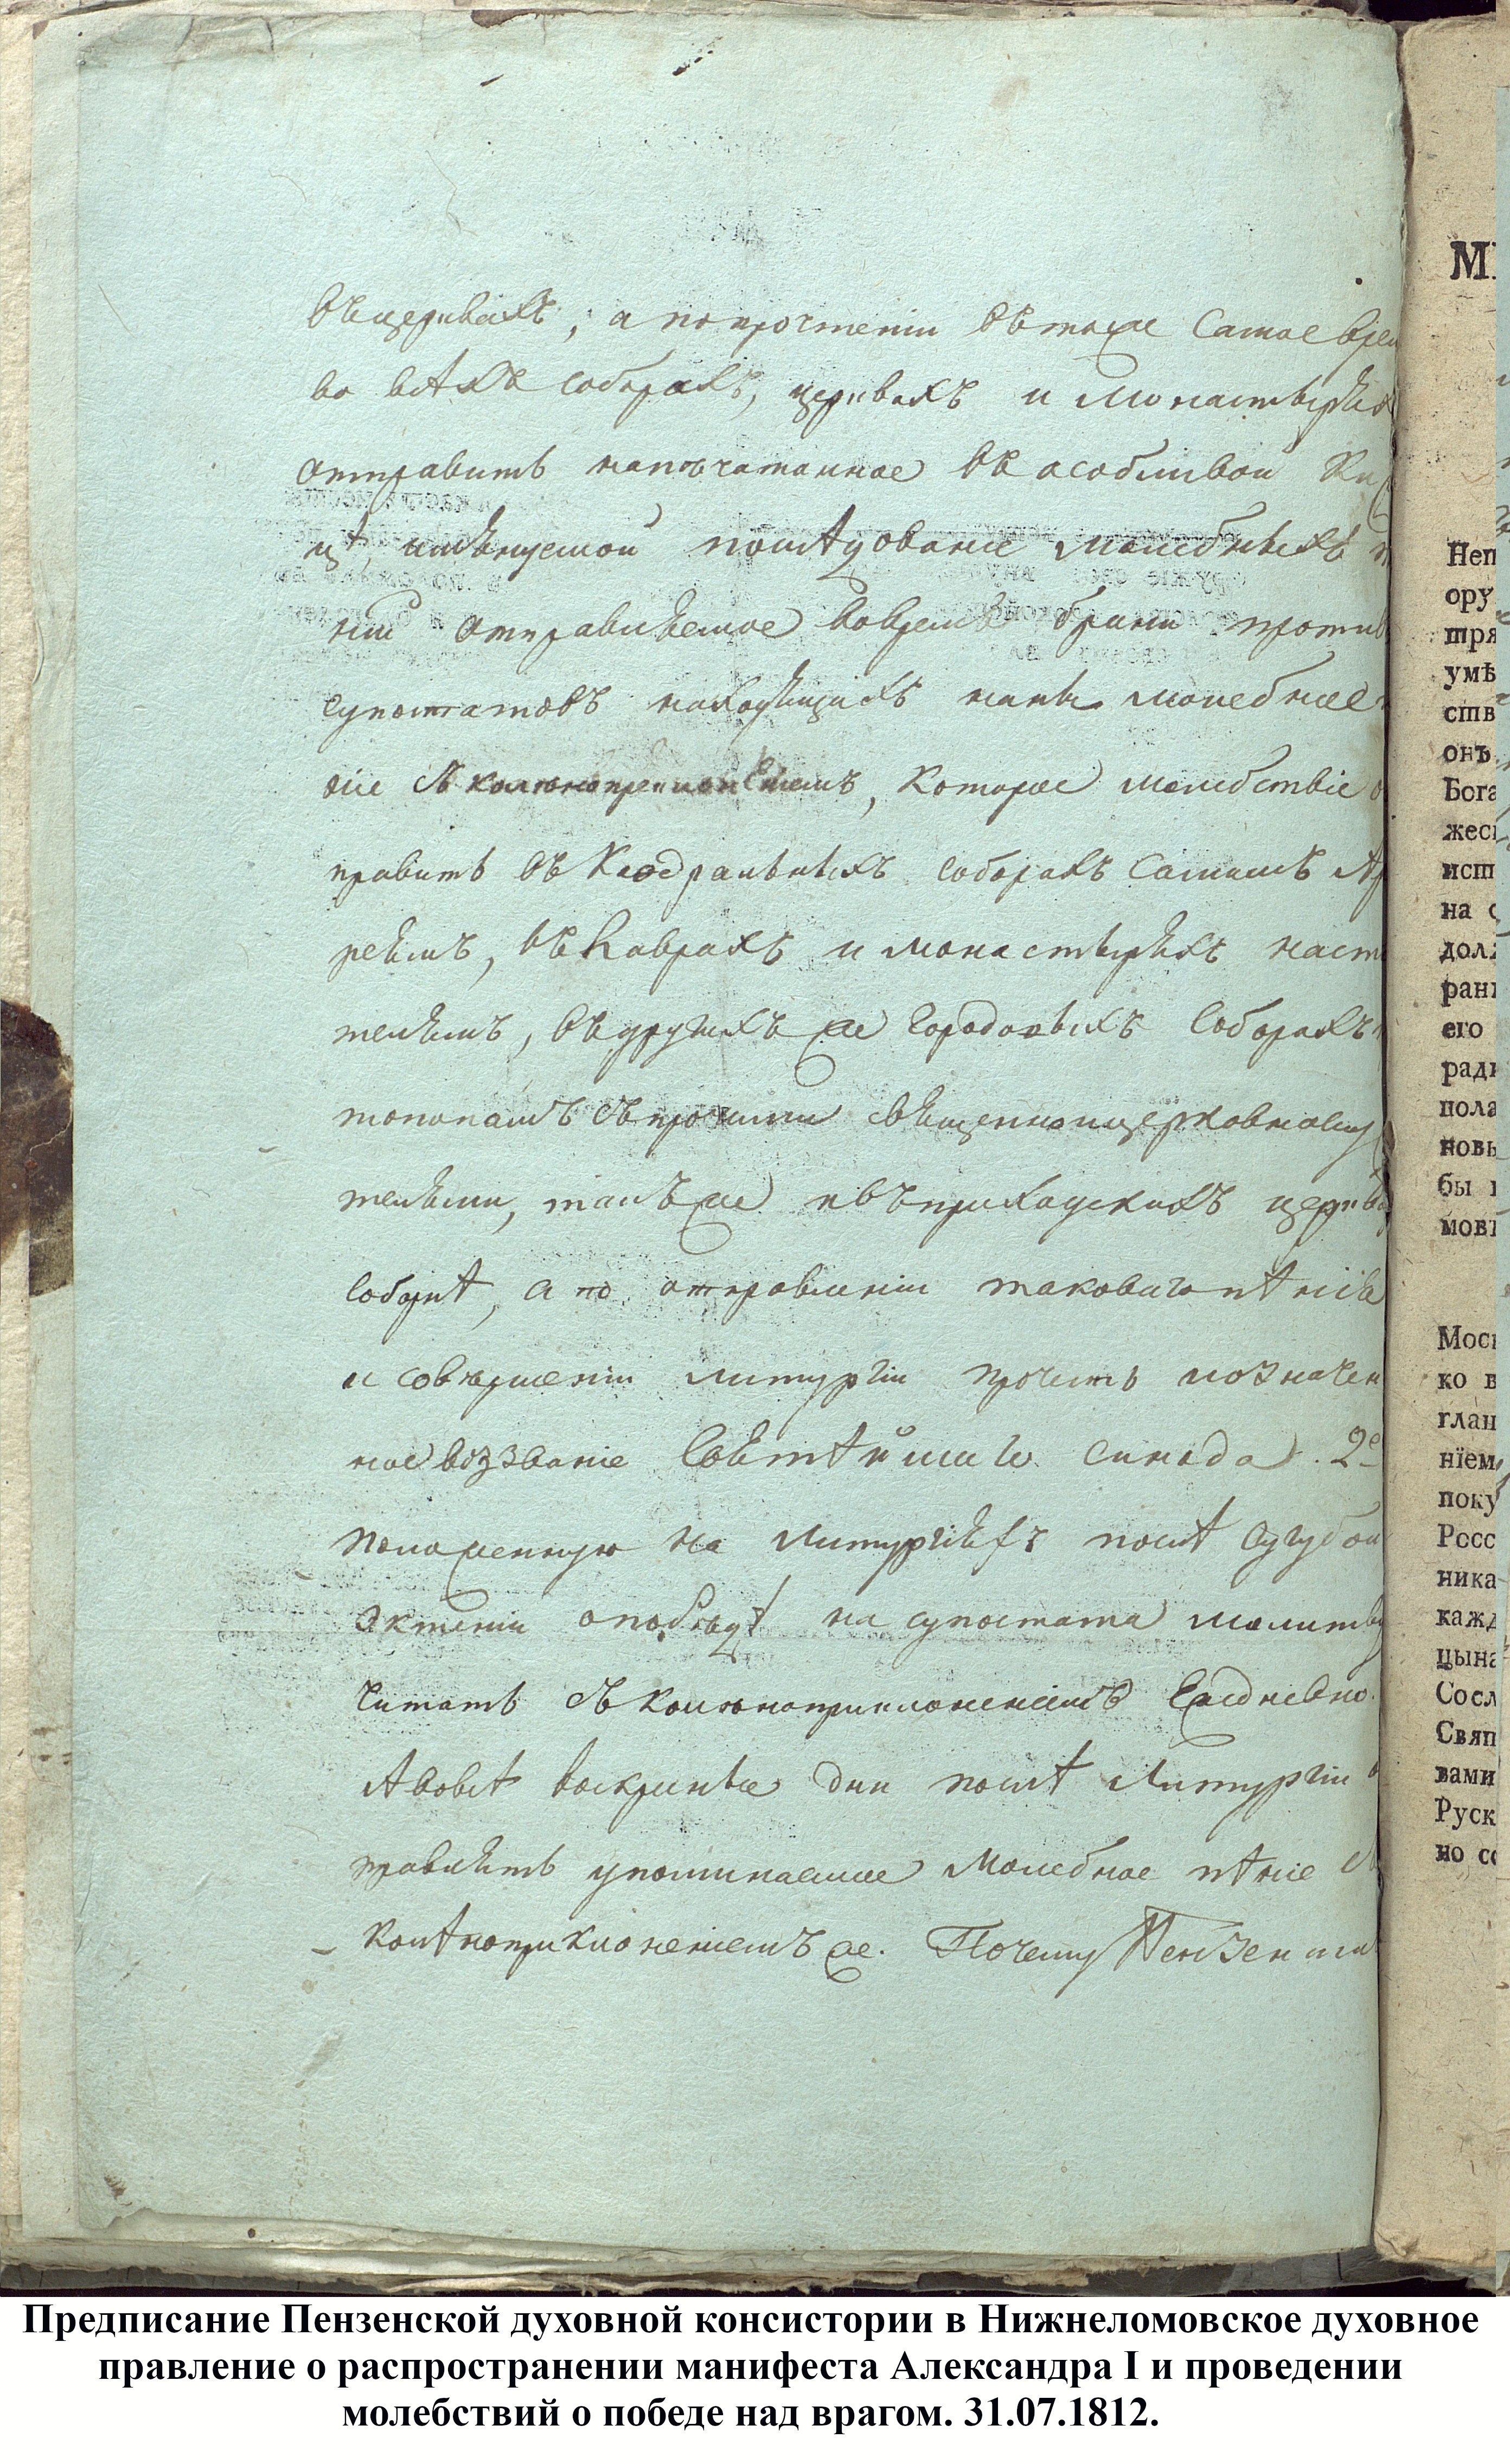 въ церквахъ; а по прочтеніи въ тоже самое врем
во всѣхъ соборахъ, церквахъ и монастыряхъ
отправить напечатанное въ особливой кни
цѣ, имянуемой послѣдованіе молебныхъ п
ніи отправляемое вовремя брани против
супостатовъ находящихъ наны молебное
ніе съ колѣнопреклоненіемъ, которое молебствіе о
править въ каѳедральныхъ соборахъ самимъ Ар
реямъ, въ Лаврахъ и монастыряхъ насто
телямъ, въ другихъ же городовыхъ соборахъ
топопамъ съ прочими священноцерковнослу
телями, такъ же и въ приходскихъ церква
соборнѣ, а по отправленіи таковаго пѣнія
и совершеніи литургіи прочесть и означен
ное воззваніе Святѣйшаго Синода. 2е
положенную на литургіяхъ послѣ сугубой
эктеніи о побѣдѣ на супостата молитву
читать съ колѣнопреклоненіемъ ежедневно.
А во всѣ воскресные дни послѣ литургіи о
правлять упоминаемое молебное пѣніе съ
колѣнопреклоненіемъ же. Почему Пензенская
М
Неп
ору
шря
умѣ
ств
онъ
Бога
жес
исп
на с
дол
ран
его
ради
пола
новы
бы
мовъ
Моск
ко в
глан
нїем
поку
Росс
ника
кажд
цына
Сосл
Свяп
вами
Руск
но со
Предписание Пензенской духовной консистории в Нижнеломовское духовное
правление о распространении манифеста Александра I и проведении
молебствий о победе над врагом. 31.07.1812.